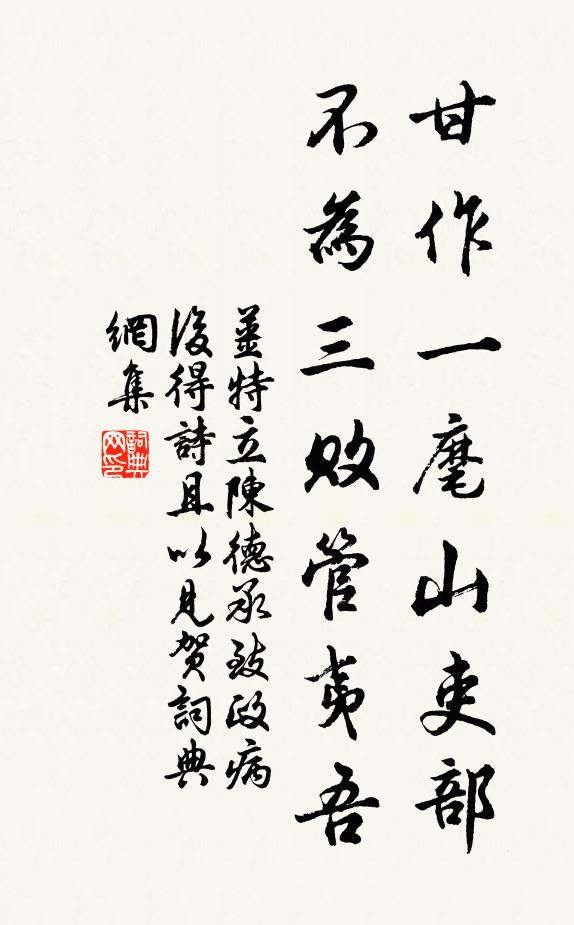 甘作一麾山吏部
不為三敗管夷吾
姜特立陳德承致政病
後得詩且以見賀詞典
網集
詞典网印